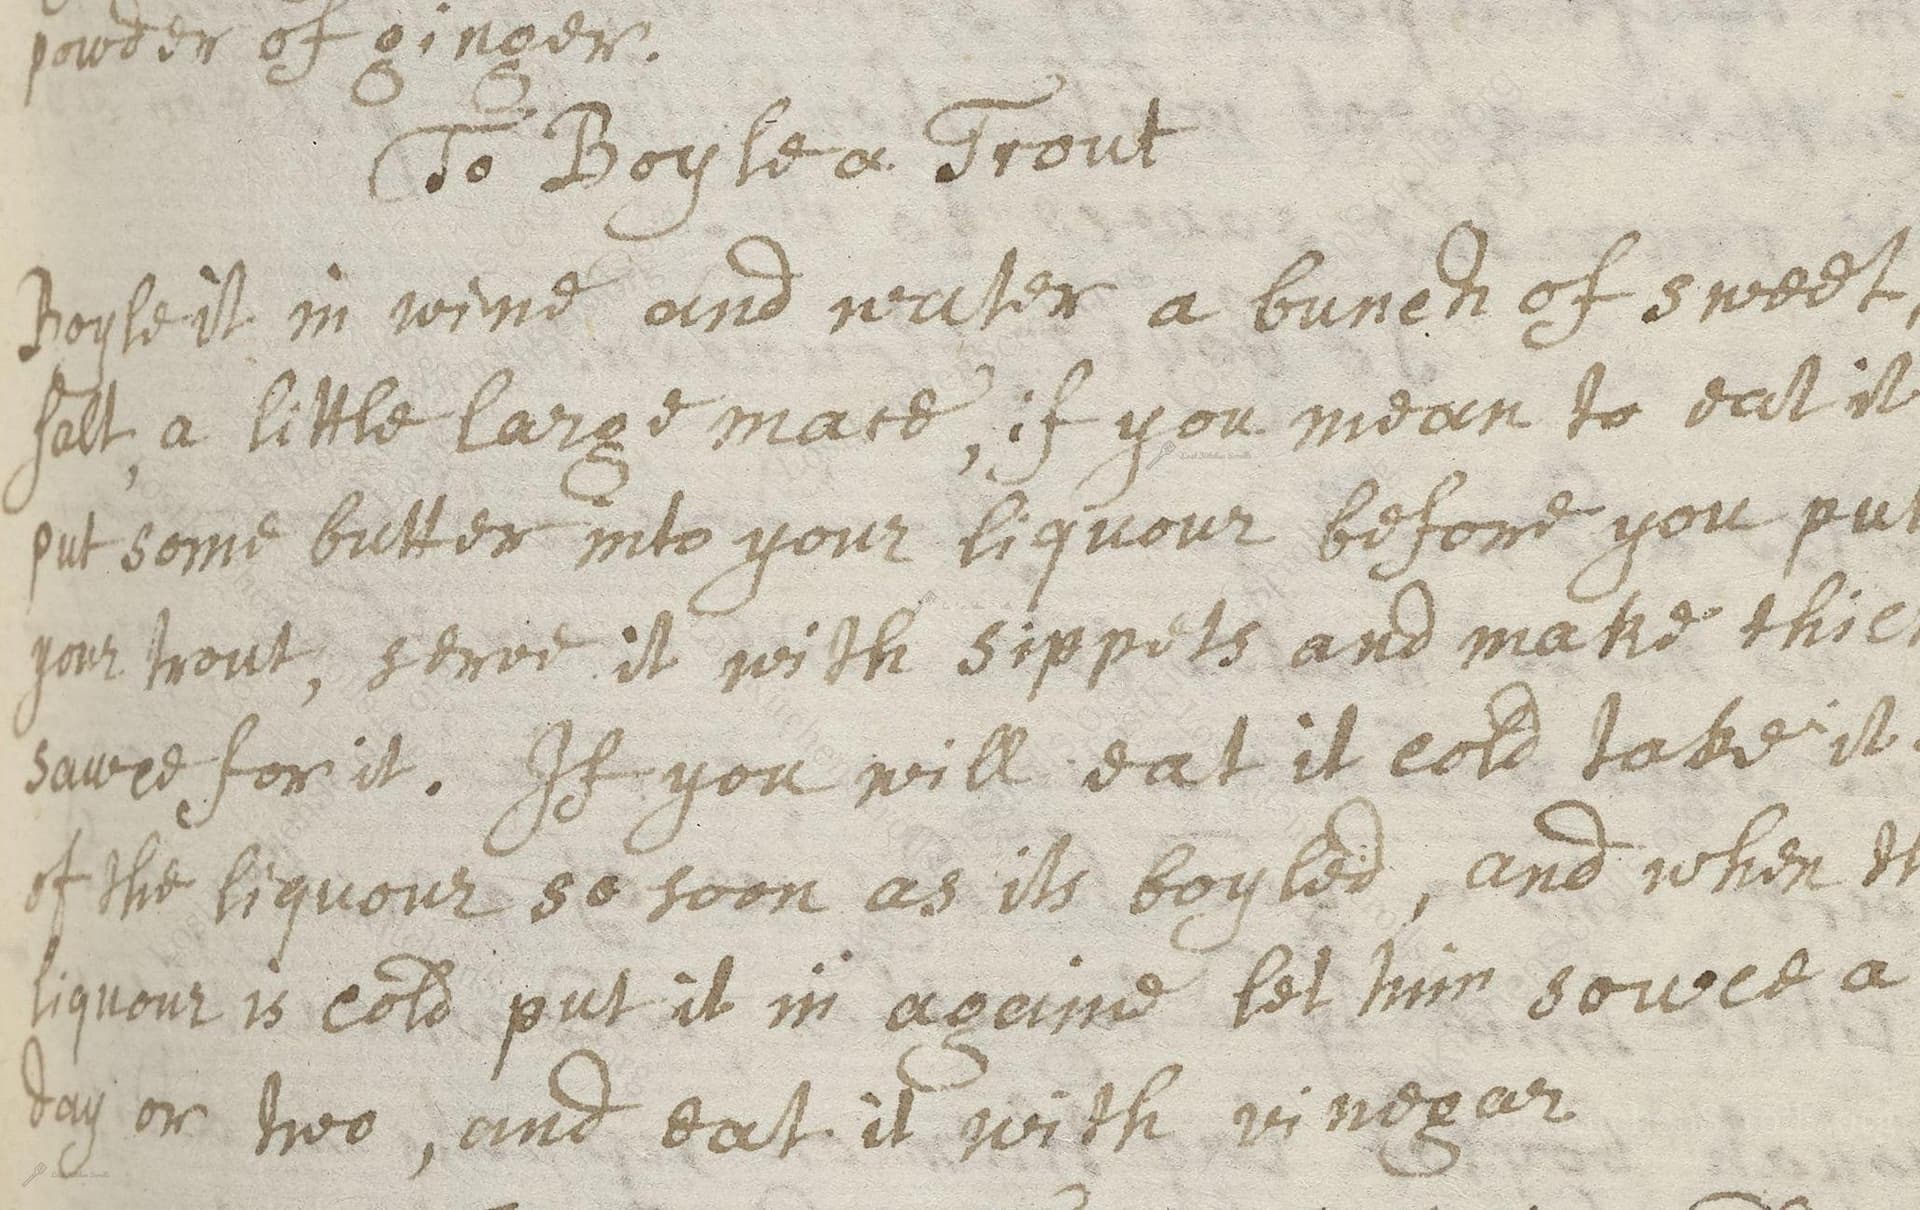 powder of ginger.
To Boyle a Trout
Boyle it in wine and water a bunch of sweet,
salt, a little large mace, if you mean to eat it
put some butter into your liquour before you put
your trout, serve it with sippets and make thick
sawce for it. If you will eat it cold take it
of the liquour so soon as its boyled, and when th
liquour is cold put it in againe let him sowce a
day or two, and eat it with vinegar